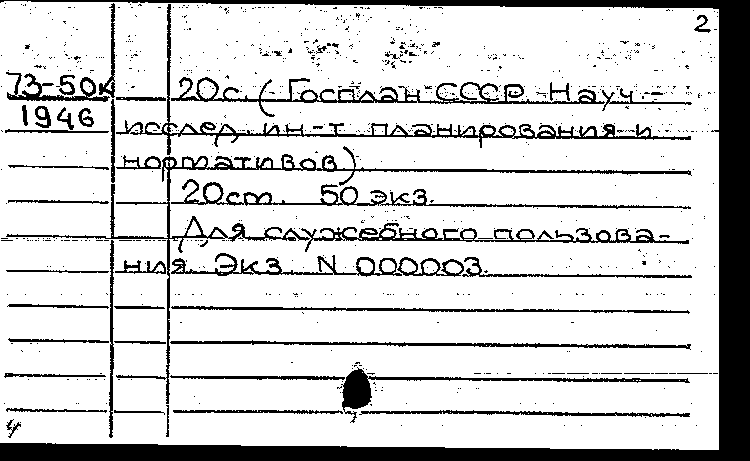 2
73-50к 20с. (Госплан СССР. Науч.-
1946 исслед. ин-т планирования и
нормативов)
20см. 50 экз.
Для служебного пользова-
ния. Экз. N 000003.
4